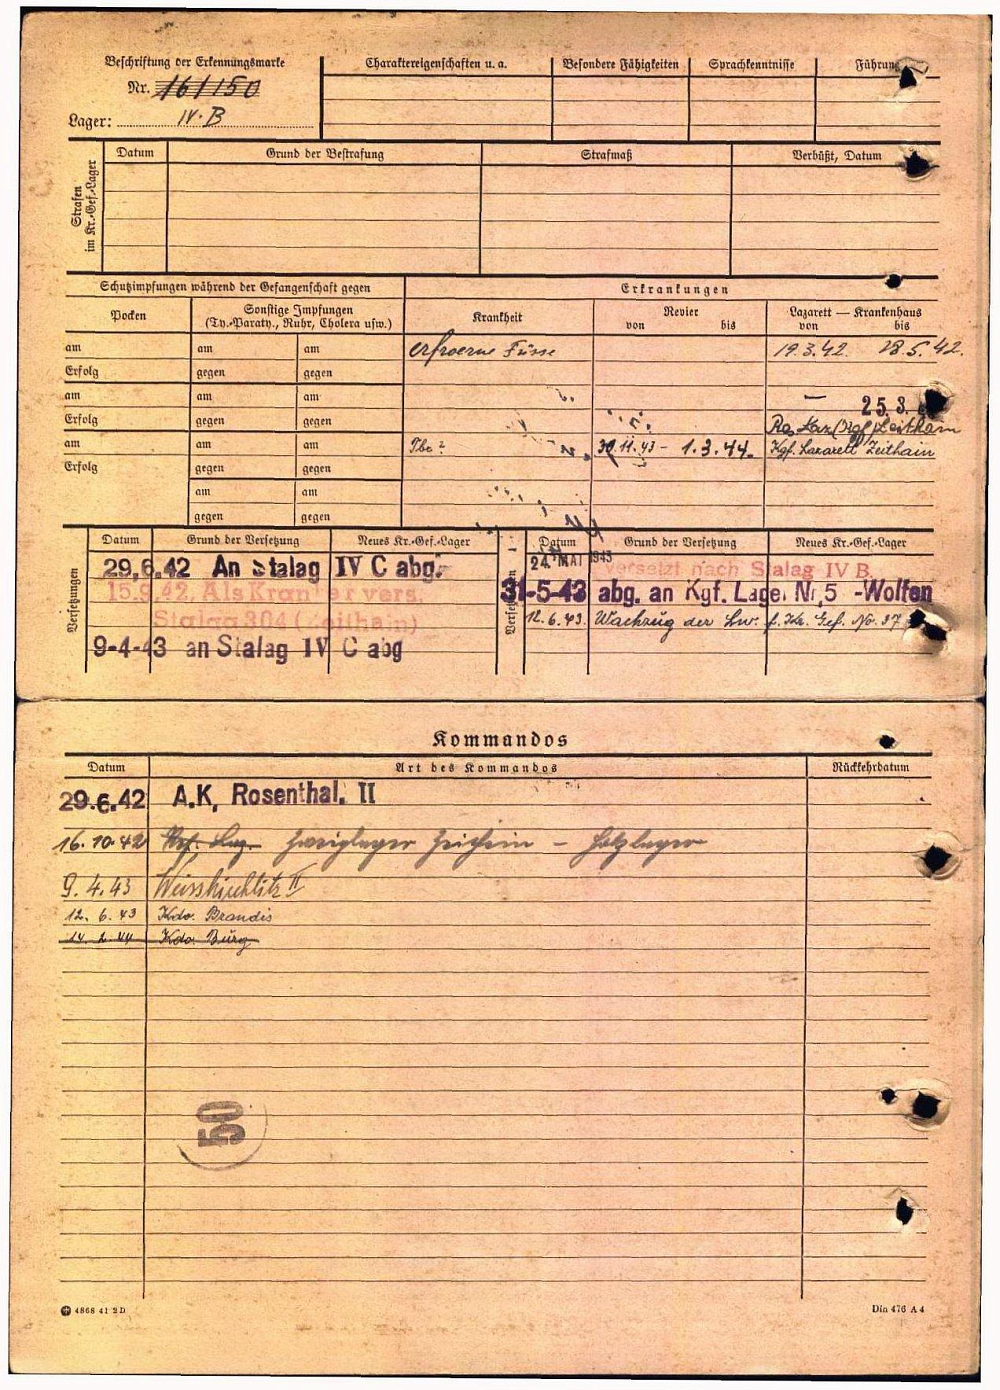 Beschriftung der Erkennungsmarke
Nr. 161150
Lager: IV.B
Charaktereigenschaften u. a.
Besondere Fähigkeiten
Sprachkenntnisse
Führung
Strafen im Kr.-Gef.-Lager
Datum
Grund der Bestrafung
Strafmaß
Verbüßt, Datum
Schutzimpfungen während der Gefangenschaft gegen
Erkrankungen
Pocken
Sonstige Impfungen
(Ty.-Paraty., Ruhr, Cholera usw.)
Krankheit
Revier
von bis
Lazarett — Krankenhaus
von bis
am am am erfroerne Füsse 19.3.42. 28.5.42.
Erfolg gegen gegen
am am am — 25.3.
Erfolg gegen gegen Zeithain
am am am Tbc? 30.11.43 - 1.3.44. Kgf. Lazarett Zeithain
Erfolg gegen gegen
am am
gegen gegen
Versetzungen
Datum Grund der Versetzung Neues Kr.-Gef.-Lager
29.6.42 An Stalag IV C abg.
15.9.42. Als Kranker vers.
Stalag 304 (Zeithain)
9-4-43 an Stalag IV C abg
Versetzungen
Datum Grund der Versetzung Neues Kr.-Gef.-Lager
24. MAI 1943 versetzt nach Stalag IV B.
31-5-43 abg. an Kgf. Lager Nr,5 -Wolfen
12.6.43. Wachzug der Lw. f. Kr. Gef. No. 37
Kommandos
Datum Art des Kommandos Rückkehrdatum
29.6.42 A.K. Rosenthal. II
16.10.42 Zweiglager Zeithain - Holzlager
9.4.43 Weisskirchlitz II
12. 6. 43 Kdo. Brandis
14. 2. 44 Kdo. Burg
50
4868 41 2 D
Din 476 A 4